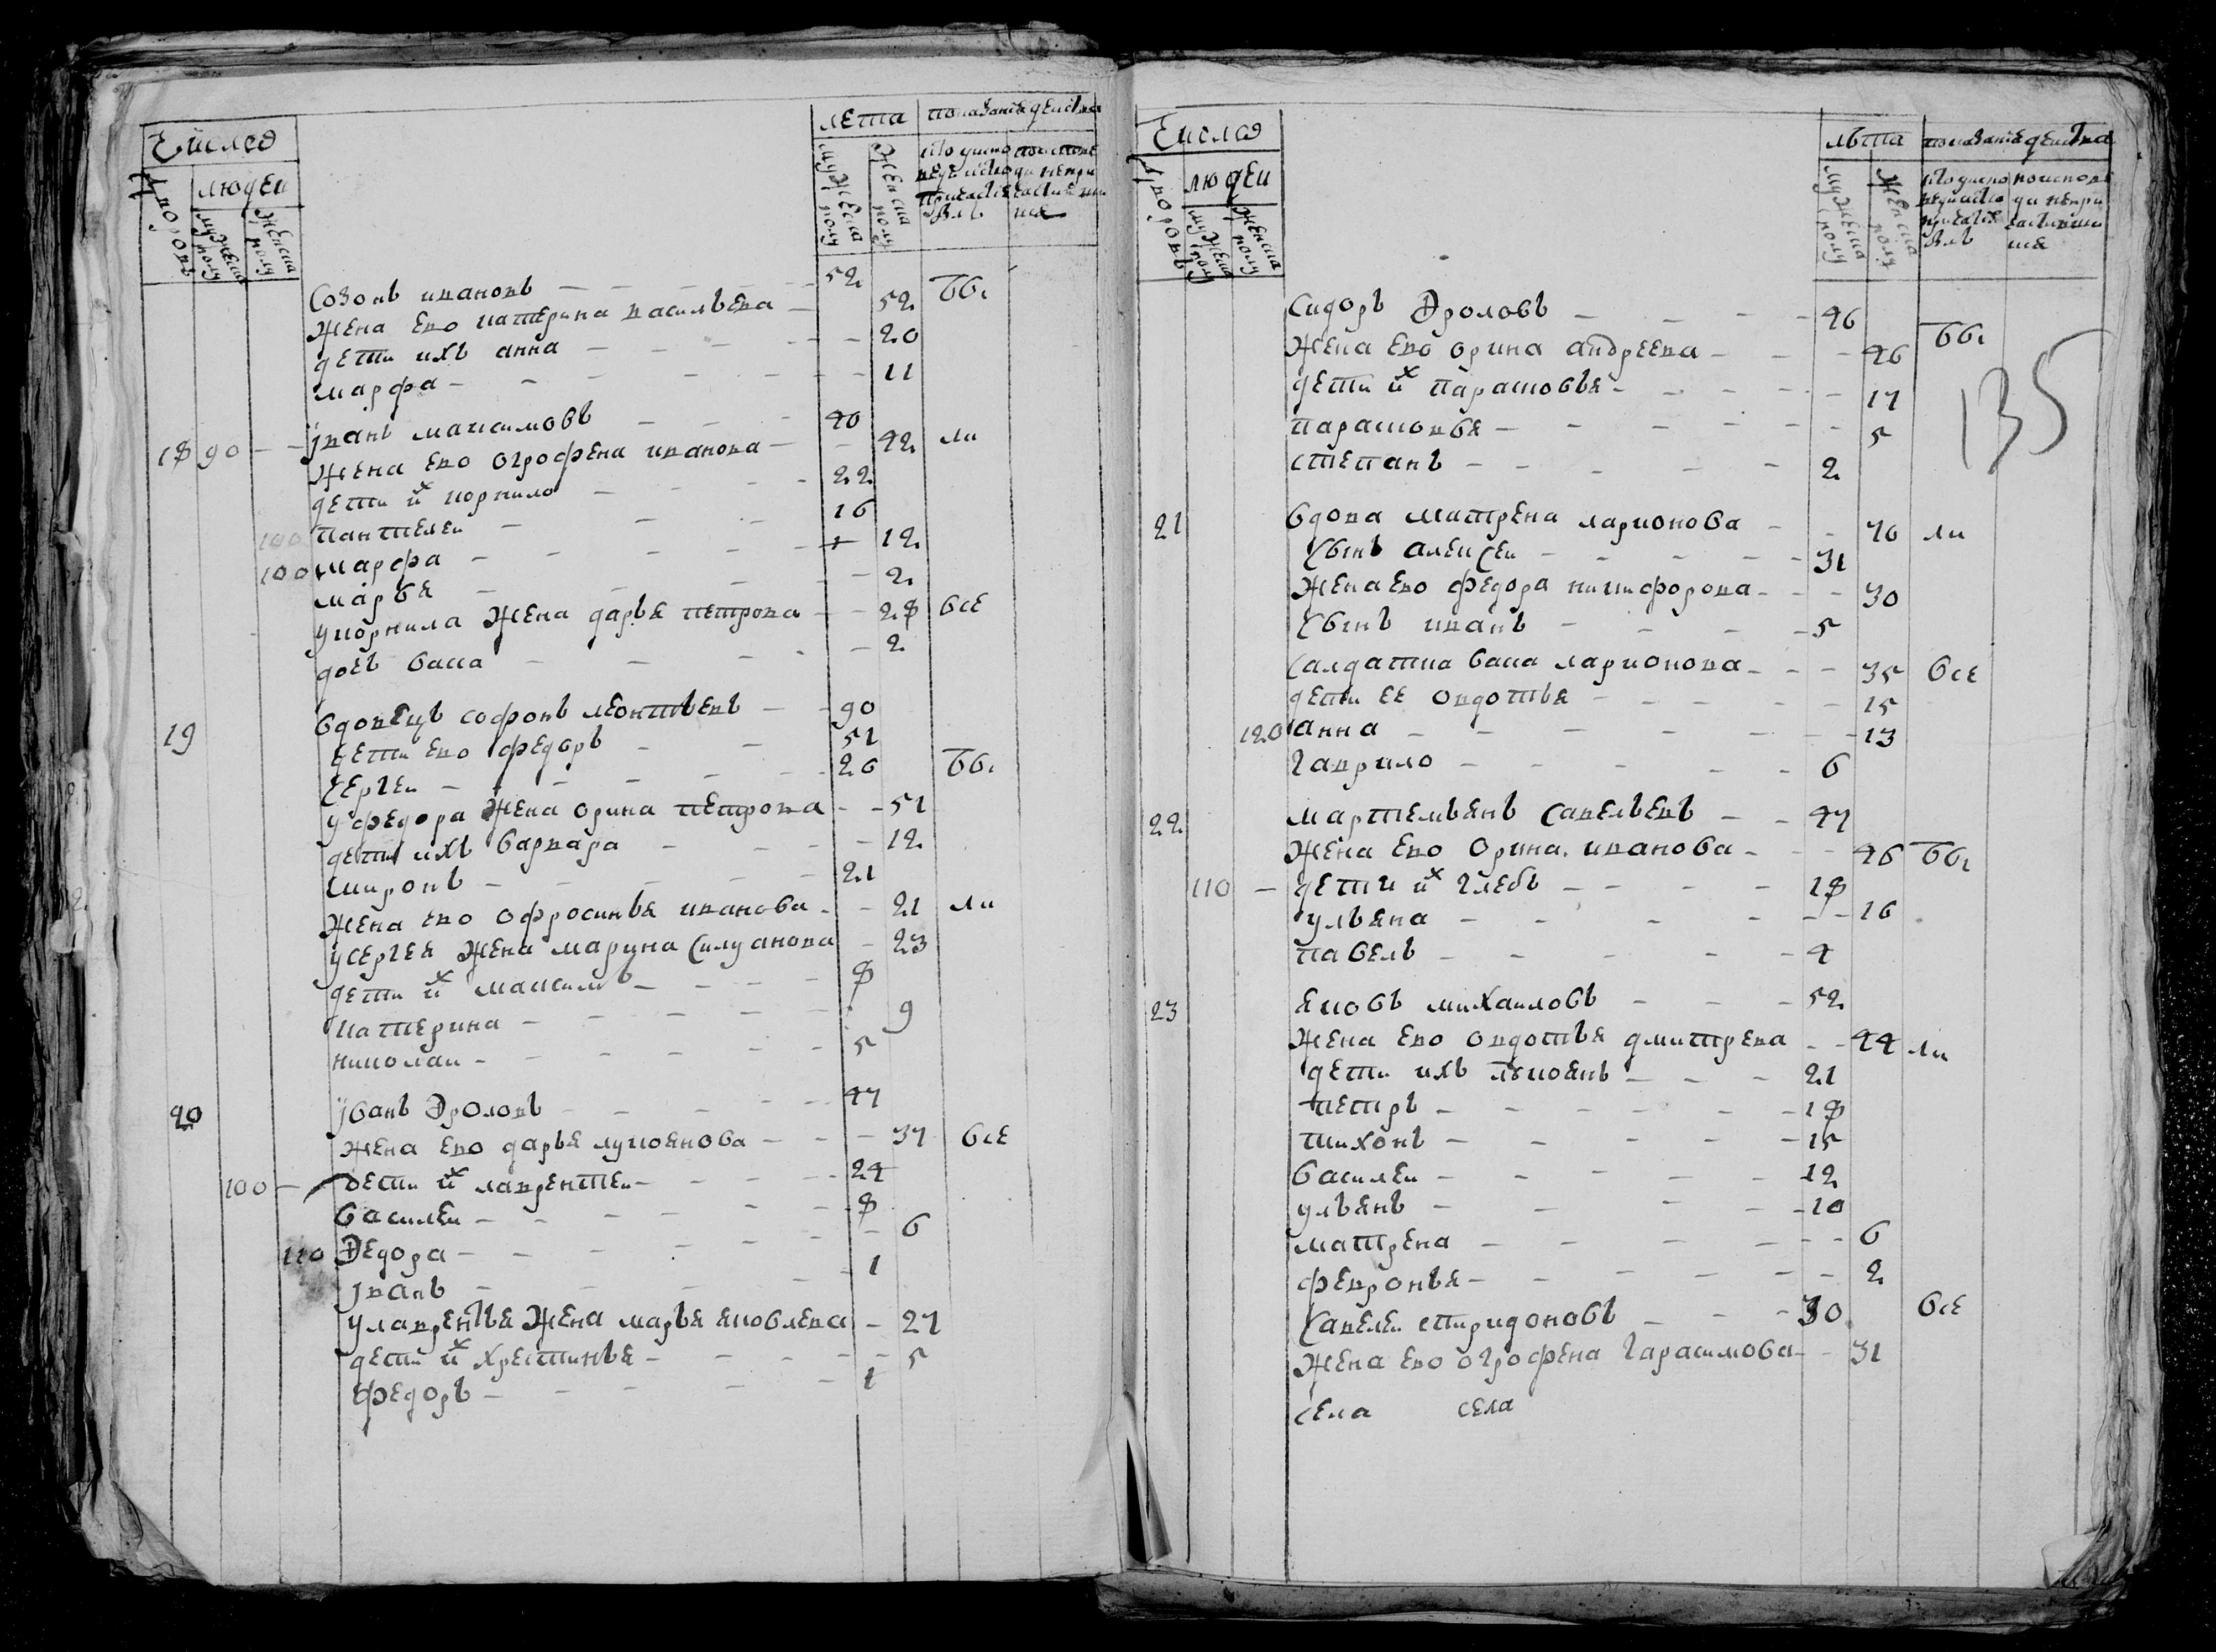 Число
лета показание действа
дворовъ
людеи
мужеска полу
женска полу
мужеска полу
женска полу
Созонъ ивановъ — 52 бы
жена ево катерина васильева — 52
дети ихъ анна — 20
марфа — 11
18 90 — iванъ максимовъ — 40
жена ево огрофена иванова — 42 ли
дети их корнило — 22
100 пантелеи — 16
100 марфа — 12
марья — 2
у корнила жена дарья петрова — 28 все
дочь васса — 2
19 вдовецъ софонъ леонтьевъ — 90
дети ево федоръ — 51
сергеи — 26 бы
у федора жена орина петрова — 51
дети ихъ варвара — 12
миронъ — 21
жена ево офросинья иванова — 21 ли
у сергея жена марина силуанова — 23
дети их максимъ — 8
катерина — 9
николаи — 5
20 iванъ Фроловъ — 47
жена ево дарья лукоянова — 37 все
100 — дети их лаврентеи — 24
василеи — 8
110 Федора — 6
iванъ — 1
у лаврентья жена марья яковлева — 27
дети их христинья — 5
федоръ — 1
Число
льта показание действа
дворовъ
людеи
мужеска полу
женска полу
мужеска полу
женска полу
135
Сидоръ Фроловъ — 46 бы
жена ево орина андреева — 46
дети их парасковья — 17
парасковья — 5
степанъ — 2
21 вдова матрена ларионова — 70 ли
сынъ алексеи — 31
жена ево федора никифорова — 30
сынъ иванъ — 5
салдатка васа ларионова — 35 все
дети ее овдотья — 15
120 анна — 13
гаврило — 6
22 мартемьянъ савельевъ — 47
жена ево орина иванова — 46 бы
110 — дети их глебъ — 18
ульяна — 16
павелъ — 4
23 яковъ михаиловъ — 52
жена ево овдотья дмитрева — 44 ли
дети ихъ лукоянъ — 21
петръ — 18
тихонъ — 15
василеи — 12
ульянъ — 10
матрена — 6
февронья — 2
савелеи спиридоновъ — 30 все
жена ево огрофена гарасимова — 31
села села